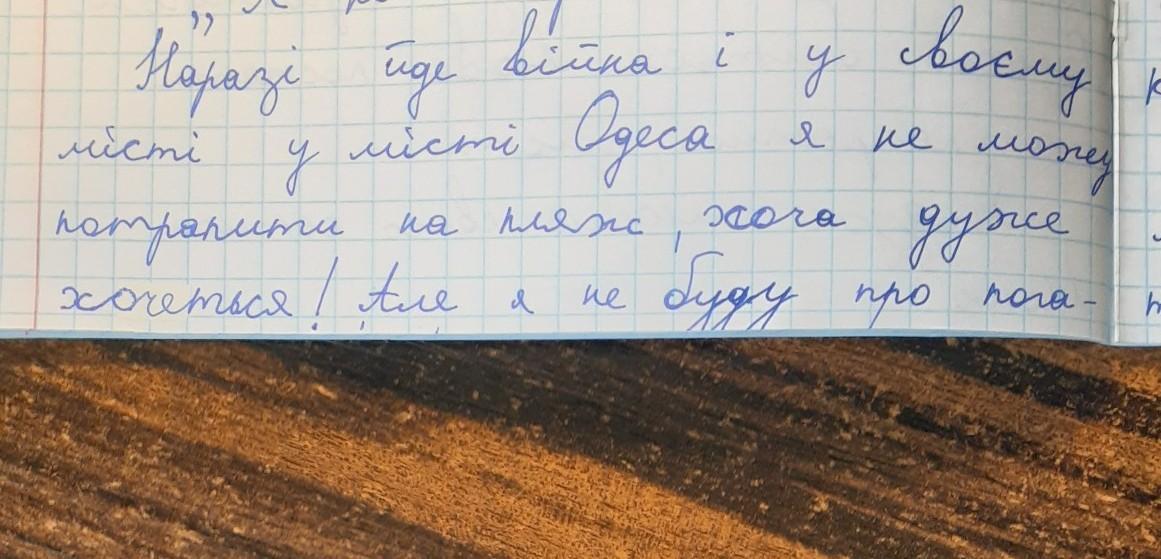 „Наразі йде війна і у своєму
місті у місті Одеса я не можу
потрапити на пляж, хоча дуже
хочеться! Але я не буду про пога-